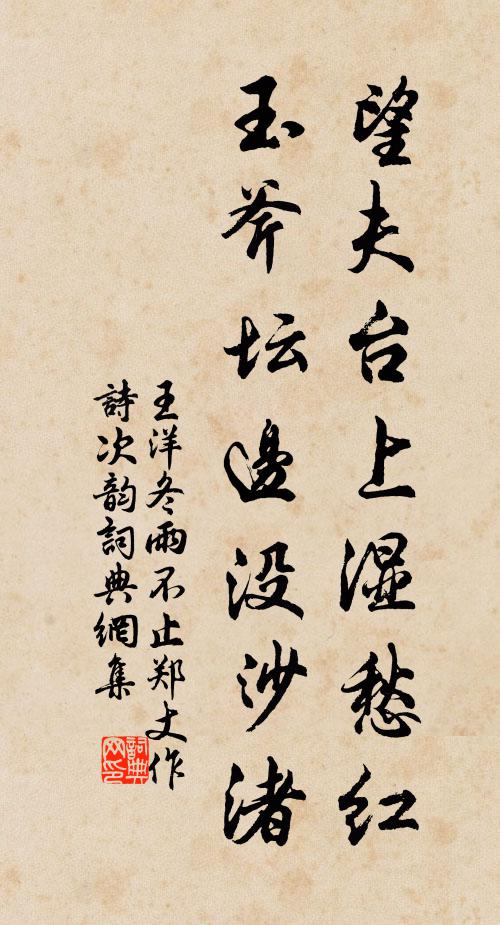 望夫台上湿愁红
玉斧坛边没沙渚
王洋冬雨不止郑丈作
詩次韵詞典網集
詞典网印